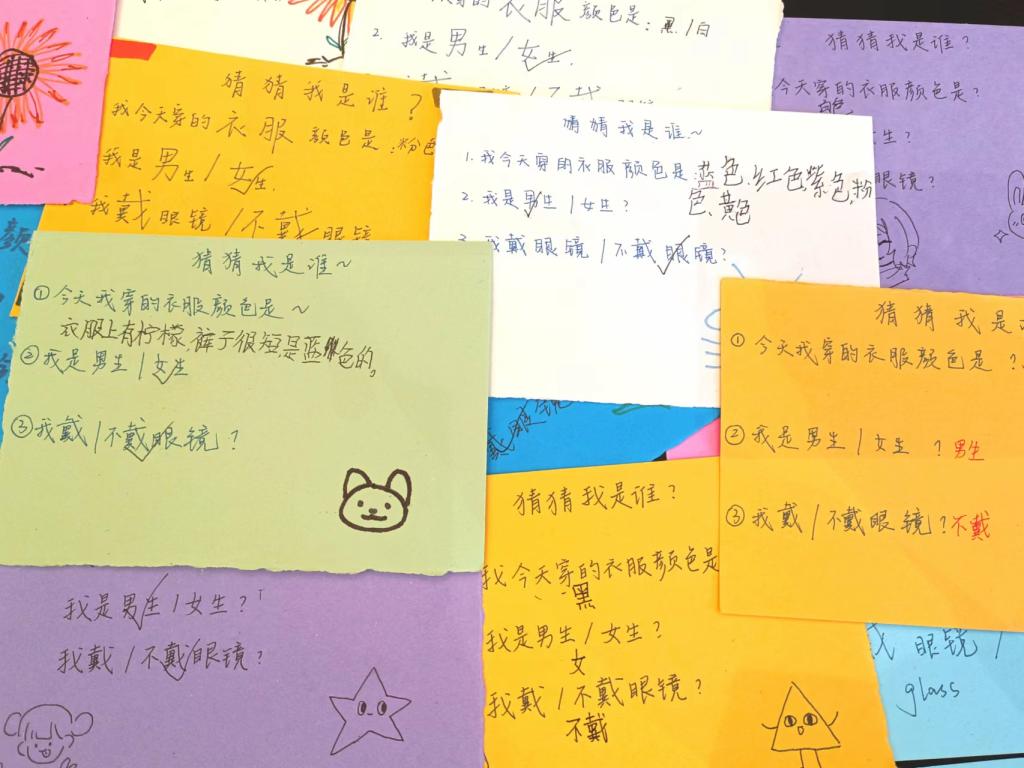 衣服 颜色是:黑/白
2. 我是男生/女生.
猜猜我是谁?
我今天穿的衣服颜色是:粉色
我是男生/女生.
我戴眼镜/不戴眼镜
猜猜我是谁~
1. 我今天穿的衣服颜色是:蓝色、红色紫色,粉
色、黄色
2. 我是男生/女生?
我戴眼镜/不戴眼镜?
猜猜我是谁?
今天穿的衣服颜色是?
生?
眼镜?
猜猜我是谁~
①今天我穿的衣服颜色是~
衣服上有柠檬,裤子很短是蓝色的。
②我是男生/女生
③我戴/不戴眼镜?
猜猜我是
①今天我穿的衣服颜色是?
②我是男生/女生?男生
③我戴/不戴眼镜?不戴
戴眼镜
猜猜我是谁?
我今天穿的衣服颜色是
黑
我是男生/女生?
女
我戴/不戴眼镜?
不戴
我是男生/女生?
我戴/不戴眼镜?
眼镜/
glass